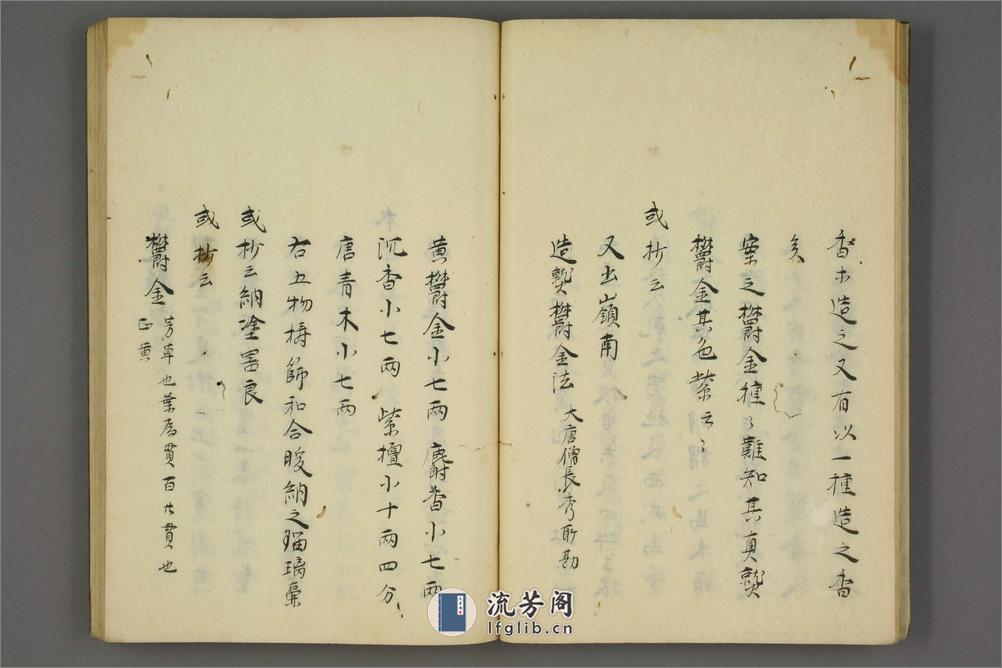 香木造之又有以一種造之香
矣
案之欝金種〻難知其真贋
欝金其色紫云〻
或抄云
又出嶺南
造贋欝金法 大唐僧長秀所勘
黄欝金小七両 麝香小七両
沉香小七両 紫檀小十両四分
唐青木小七両
右五物擣篩和合 納之瑠璃
或抄云納塗 良
或抄云
欝金 芳草也葉為貫百廾貫也
正黄
流芳阁
lfglib.cn